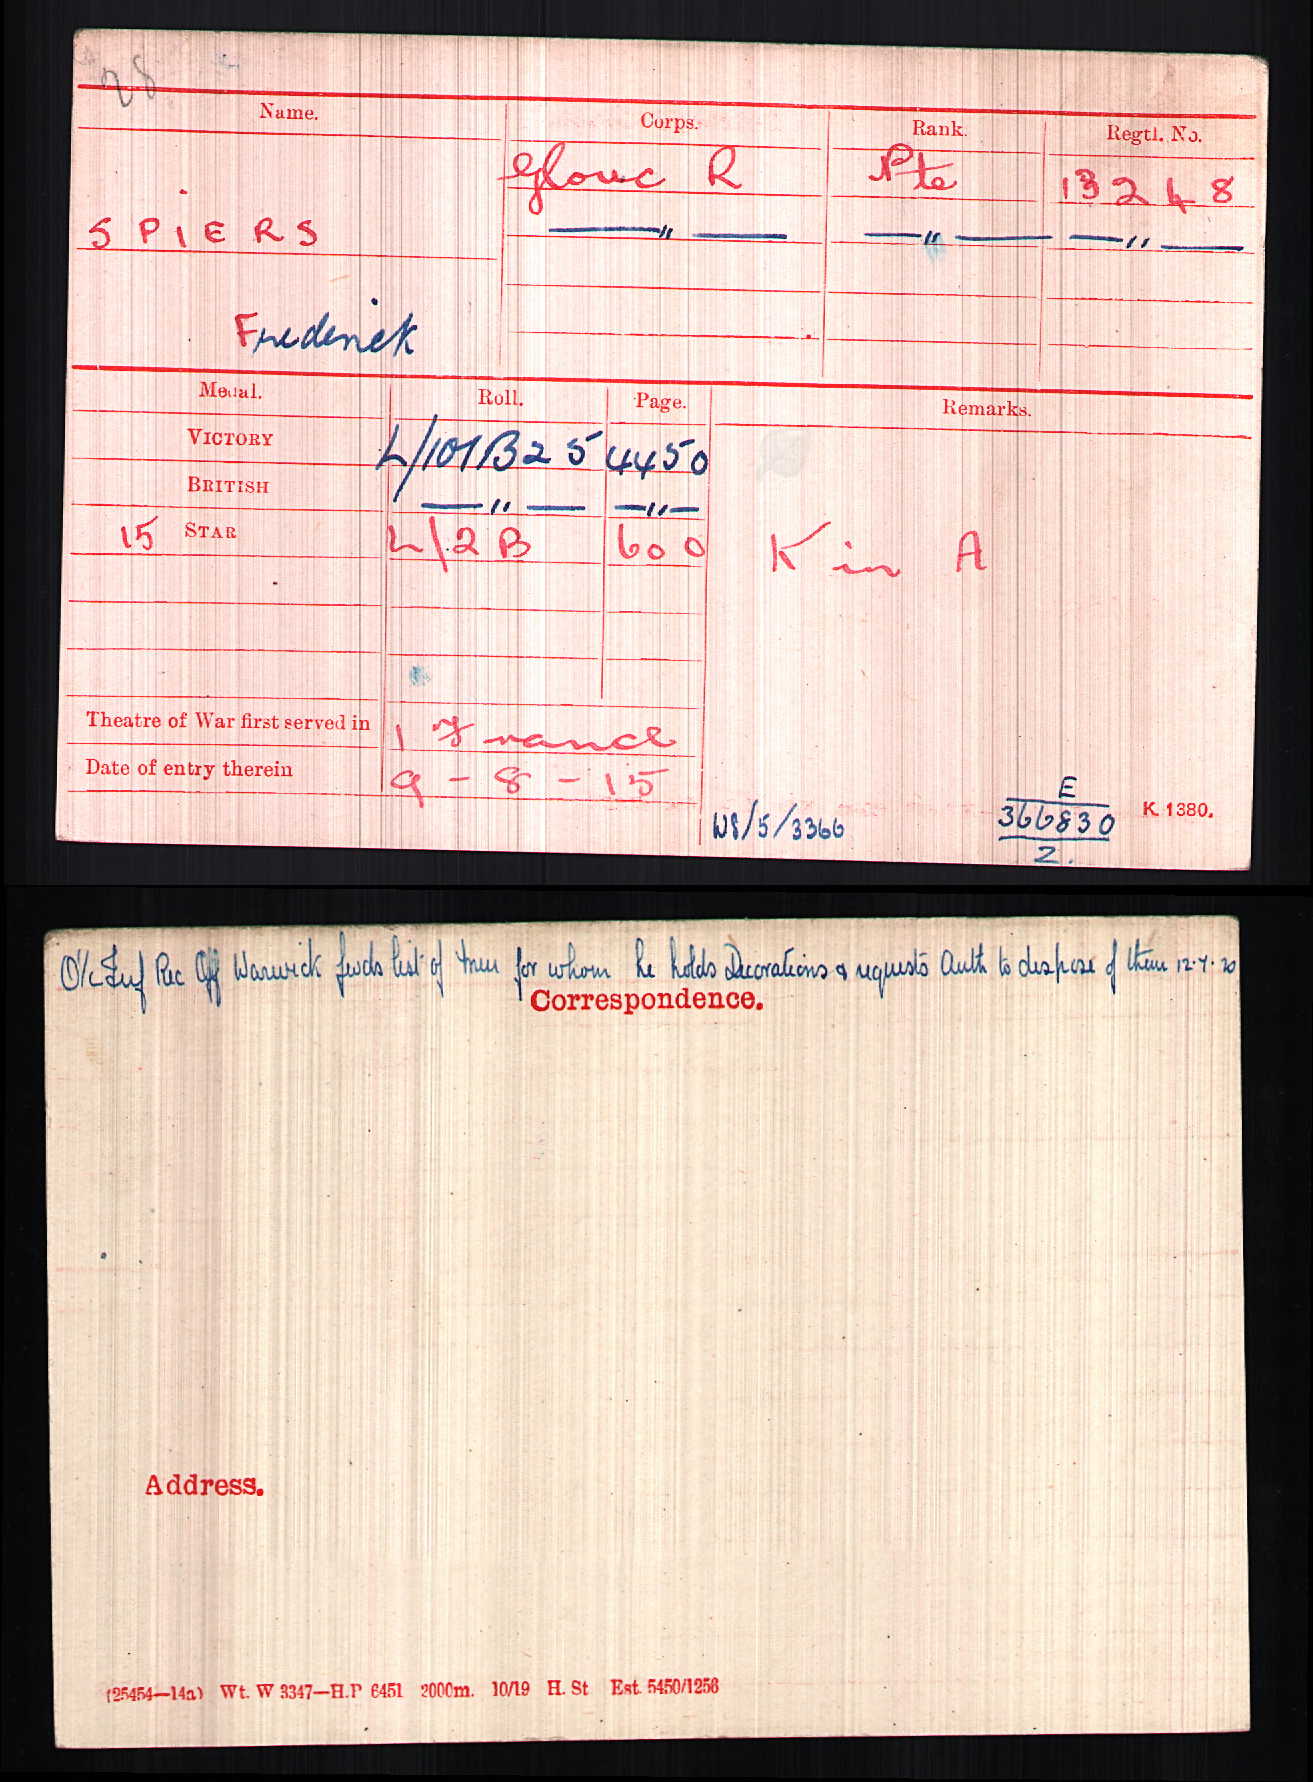 28
Name. Corps. Rank. Regtl. No.
Glouc R Pte 13248
SPIERS —〃— —〃— —〃—
Frederick
Medal. Roll. Page. Remarks.
VICTORY L/101B25 4450
BRITISH —〃— —〃—
15 STAR L/2B 600 K in A
Theatre of War first served in 1 France
Date of entry therein 9-8-15
W8/5/3366 E K. 1380.
366830
2.
O/c Inf Rec Off Warwick fwds list of men for whom he holds Decorations & requests Auth to dispose of them 12.7.20
Correspondence.
Address.
(25454—14a) Wt. W 3347—H.P 6451 2000m. 10/19 H. St Est. 5450/1256